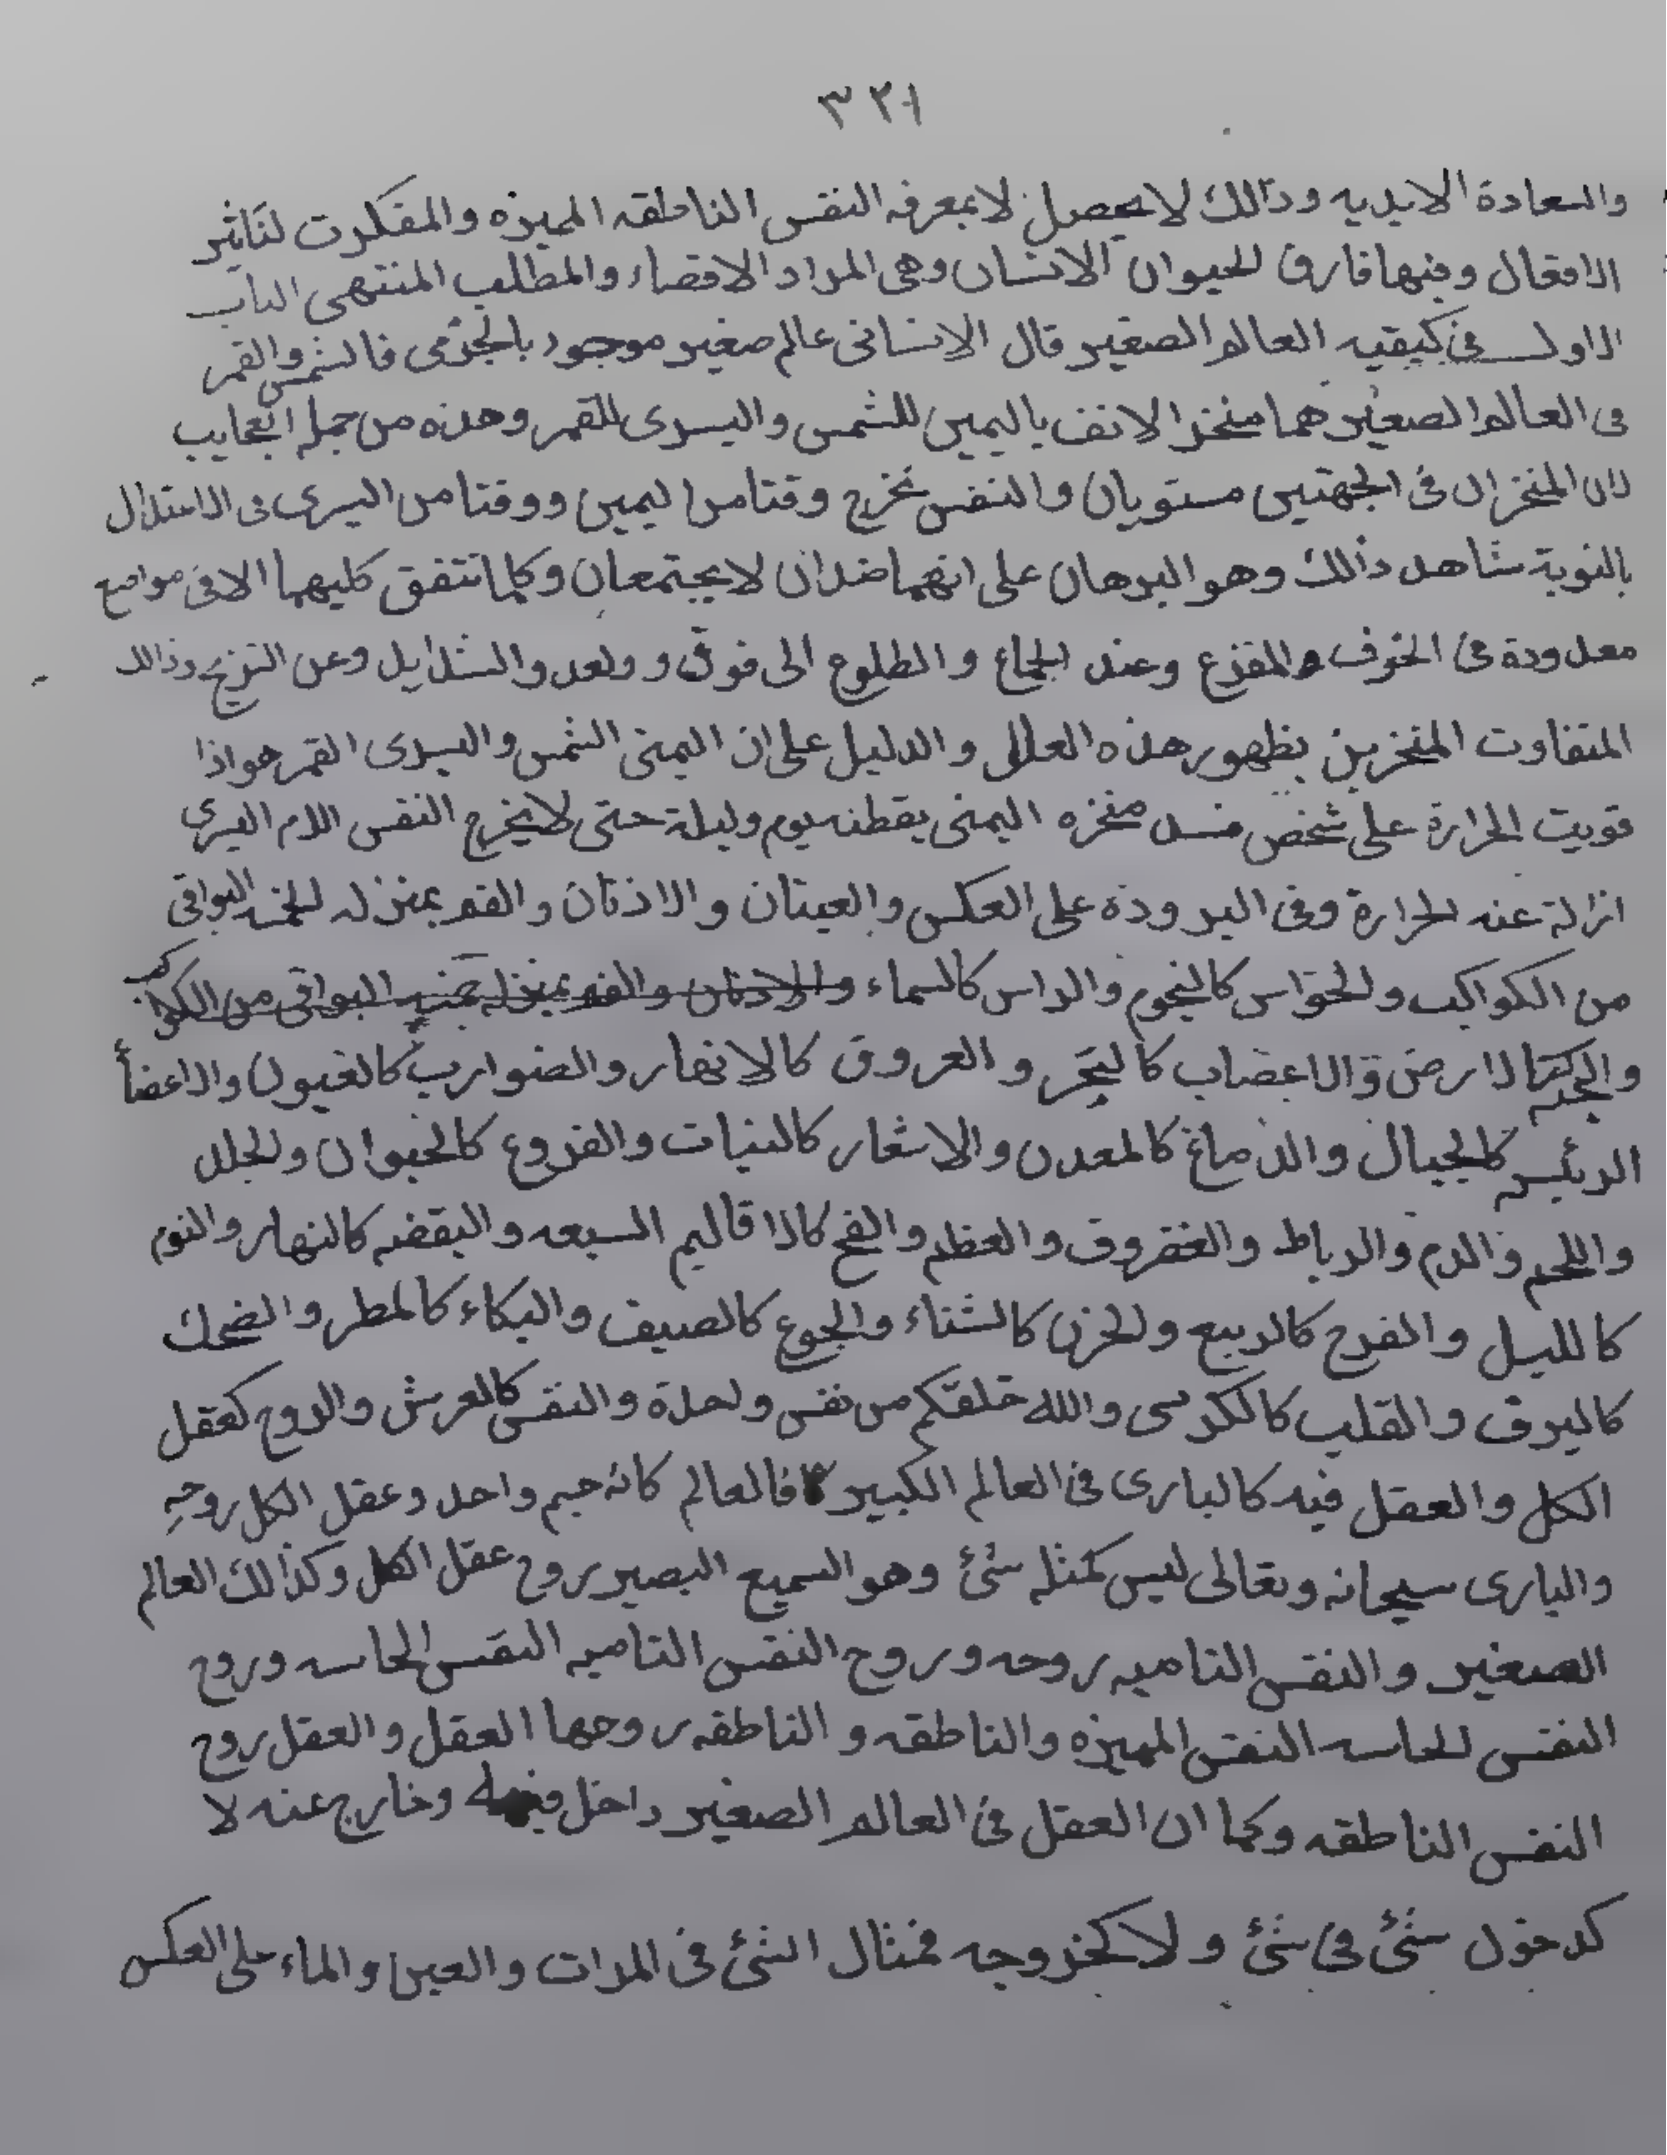 ٣٢١
والسعادة الابديه وذالك لا يحصل لا بمعرفه النفس الناطقه المميزه والمفكرت لتاثير
الافعال وفيها فارق للحيوان الانسان وهى المراد الاقصاء والمطلب المنتهى الباب
الاول فى كيفيه العالم الصغير قال الانسانى عالم صغير موجود بالجزمى فالشمس والقمر
فى العالم الصغير هما منخز الانف باليمين للشمس واليسرى للقمر وهذه من جمله العجايب
لان المنخزان فى الجهتين مستويان والنفس تخرج وقتا من اليمين ووقتا من اليسرى فى الاعتدال
بالنوبة شاهد ذالك وهو البرهان على انهما ضدان لا يجتمعان وكما تتفق كليهما الا فى مواضع
معدودة فى الخوف والفزع وعند الجماع والطلوع الى فوق و ولعد والشدايل وعن النزع وذالك
المتفاوت المنخزين يظهور هذه العلل والدليل على ان اليمنى الشمس واليسرى القمر هو اذا
قويت الحرارة على شخص فسد منخزه اليمنى بقطنه يوم وليلة حتى لا يخرج النفس اللام اليسرى
ازالة عنه الحرارة وفى البرودة على العكس والعينان والاذنان والفم بمنزله الخمسه البواقى
من الكواكب والحواس كالنجوم والراس كالسماء والاذنان والفم بمنزله خمسه البواقى من الكواكب
والجسم كالارض والاعضاب كالبحر والعروق كالانهار والضوارب كالعيون والاعضأ
الرئيس كالجبال والدماغ كالمعدن والاشعار كالنبات والفروع كالحيوان والجلد
واللحم والدم والرباط والغضروف والعظم والمخ كالاقاليم السبعه واليقضه كالنهار والنوم
كالليل والفرح كالربيع والحزن كالشتاء والجوع كالصيف والبكاء كالمطر والضحك
كالبرق والقلب كالكرسى والله خلقكم من نفس واحدة والنفس كالعرش والروح كعقل
الكل والعقل فيه كالبارى فى العالم الكبير فالعالم كانه جسم واحد وعقل الكل روحه
والبارى سبحانه وتعالى ليس كمثله شئ وهو السميع البصير روح عقل الكل وكذالك العالم
الصغير والنفس الناميه روحه وروح النفس الناميه النفس الحاسه وروح
النفس الحاسه النفس المميزه والناطقه و الناطقه روحها العقل والعقل روح
النفس الناطقه وكما ان العقل فى العالم الصغير داخل فيه وخارج عنه لا
كدخول شئ فى شئ ولا كخروجه فمثال الشئ فى المرات والعين والماء على العكس